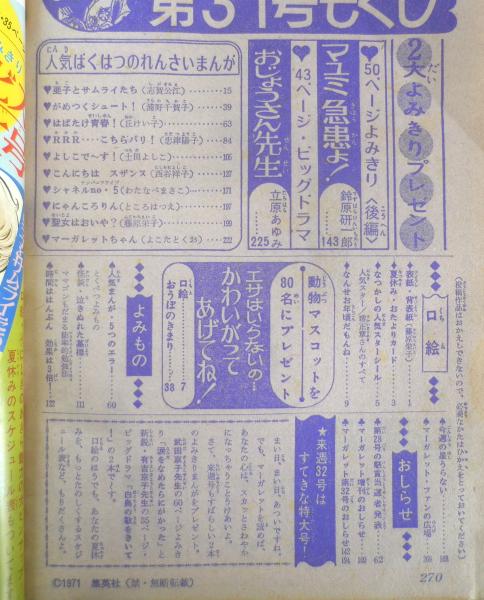 第31号もくじ
2大よみきりプレゼント
♥50ページよみきり〈後編〉
マユミ 急患よ!
鈴原研一郎
143
♥43ページ・ビッグドラマ
おじょうさん先生
立原あゆみ
225
人気ばくはつのれんさいまんが
♥亜子とサムライたち(志賀公江)……15
♥がめつくシュート!(浦野千賀子)……39
♥はばたけ青春!(丘けい子)……63
♥RRR……こちらパリ!(忠津陽子)……84
♥よしこで〜す!(土田よしこ)……105
♥こんにちは スザンヌ(西谷祥子)……127
♥シャネルno・5(わたなべまさこ)……171
♥にゃんころりん(ところはつえ)……197
♥聖女はおいや?(藤原栄子)……199
♥マーガレットちゃん(よこたとくお)……222
(投稿作品はおかえしできないので、必要なかたはひかえをとっておいてください)
口絵
♠表紙、背表紙(藤原栄子)
♠夏休み・おたよりカード……3
♠なつかしの人気スターシール……5
♠なんせお年頃だもんね……9
動物マスコットを
80名にプレゼント
エサはいらないの…
かわいがって
あげてね!
口絵……7
おうぼのきまり……38
よみもの
♠人気まんが・5つのエラー……60
♠怪談・泣きぬれた墓標……111
♠時間はんぶん 効果は3倍!……122
おしらせ
♠今週の星うらない……168
♠マーガレット ファンの広場……208
♠第28号の懸賞当選者発表……62
♠マーガレット増刊のおしらせ……169
♠マーガレット第32号のおしらせ……142 194
★来週32号は
すてきな特大号!
まい日、まい日、あついですね。
でも、マーガレットを読めば、
あなたの心は、スカッとさわやか
になっちゃうことうけあいよ。
さて、来週号もすばらしい2本
のよみきりまんがをプレゼント。
武田京子先生の60ページよみき
り「涙をなめたらにがかった」と
新鋭・有吉京子先生の55ページ・
ビッグドラマ「白鳥の歌をきいて
!」の2本です。
口絵のほうでも、あなたの夏休
みを、もっとたのしくするスケジ
ュール表など、もりだくさんよ。
©1971 集英社(禁・無断転載)
270
夏休みのスケジュール